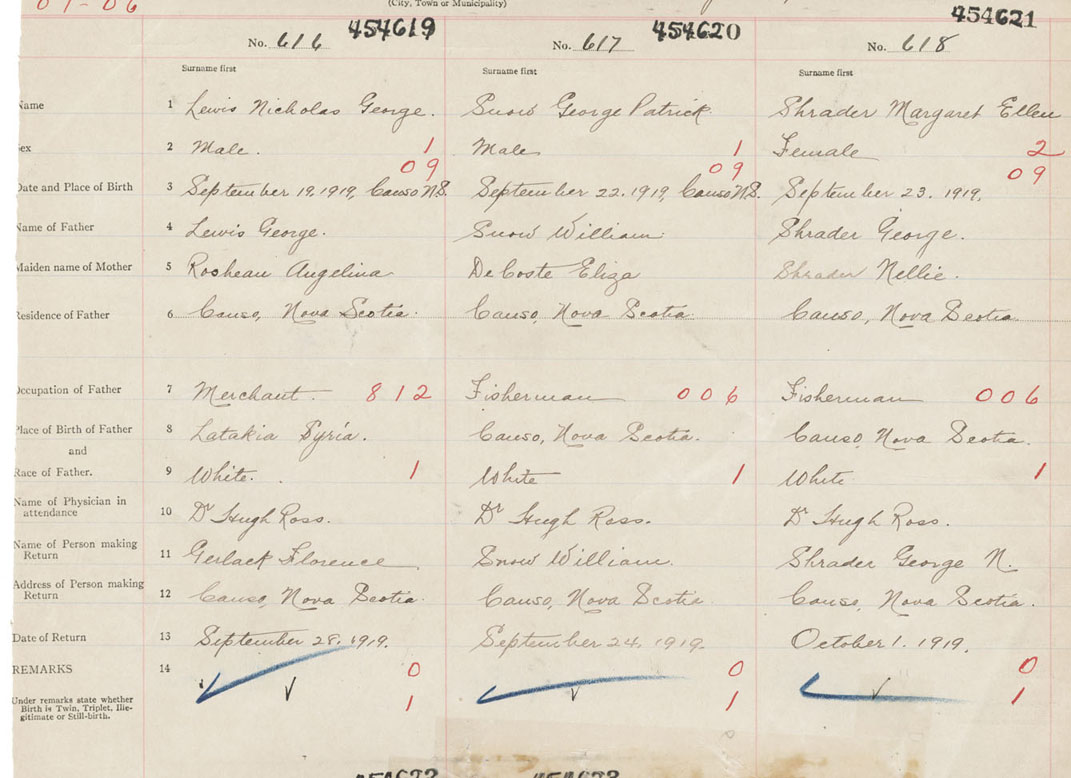 01-06
(City, Town or Municipality)
454619 454620 454621
No. 616 No. 617 No. 618
Surname first Surname first Surname first
Name 1 Lewis Nicholas George. Snow George Patrick. Shrader Margaret Ellen
Sex 2 Male. 1 Male 1 Female 2
09 09 09
Date and Place of Birth 3 September 19, 1919, Canso N.S. September 22. 1919, Canso N.S. September 23. 1919,
Name of Father 4 Lewis George. Snow William. Shrader George.
Maiden name of Mother 5 Rosheau Angelina DeCoste Eliza Shrader Nellie.
Residence of Father 6 Canso, Nova Scotia. Canso, Nova Scotia Canso, Nova Scotia
Occupation of Father 7 Merchant. 812 Fisherman 006 Fisherman 006
Place of Birth of Father 8 Latakia Syria. Canso, Nova Scotia. Canso, Nova Scotia.
and
Race of Father. 9 White. 1 White 1 White 1
Name of Physician in
attendance 10 Dr Hugh Ross. Dr Hugh Ross. Dr Hugh Ross.
Name of Person making
Return 11 Gerlack Florence Snow William. Shrader George N.
Address of Person making
Return 12 Canso, Nova Scotia Canso, Nova Scotia. Canso, Nova Scotia.
Date of Return 13 September 28, 1919. September 24, 1919. October 1. 1919.
REMARKS 14 0 0 0
Under remarks state whether
Birth is Twin, Triplet, Ille-
gitimate or Still-birth. 1 1 1